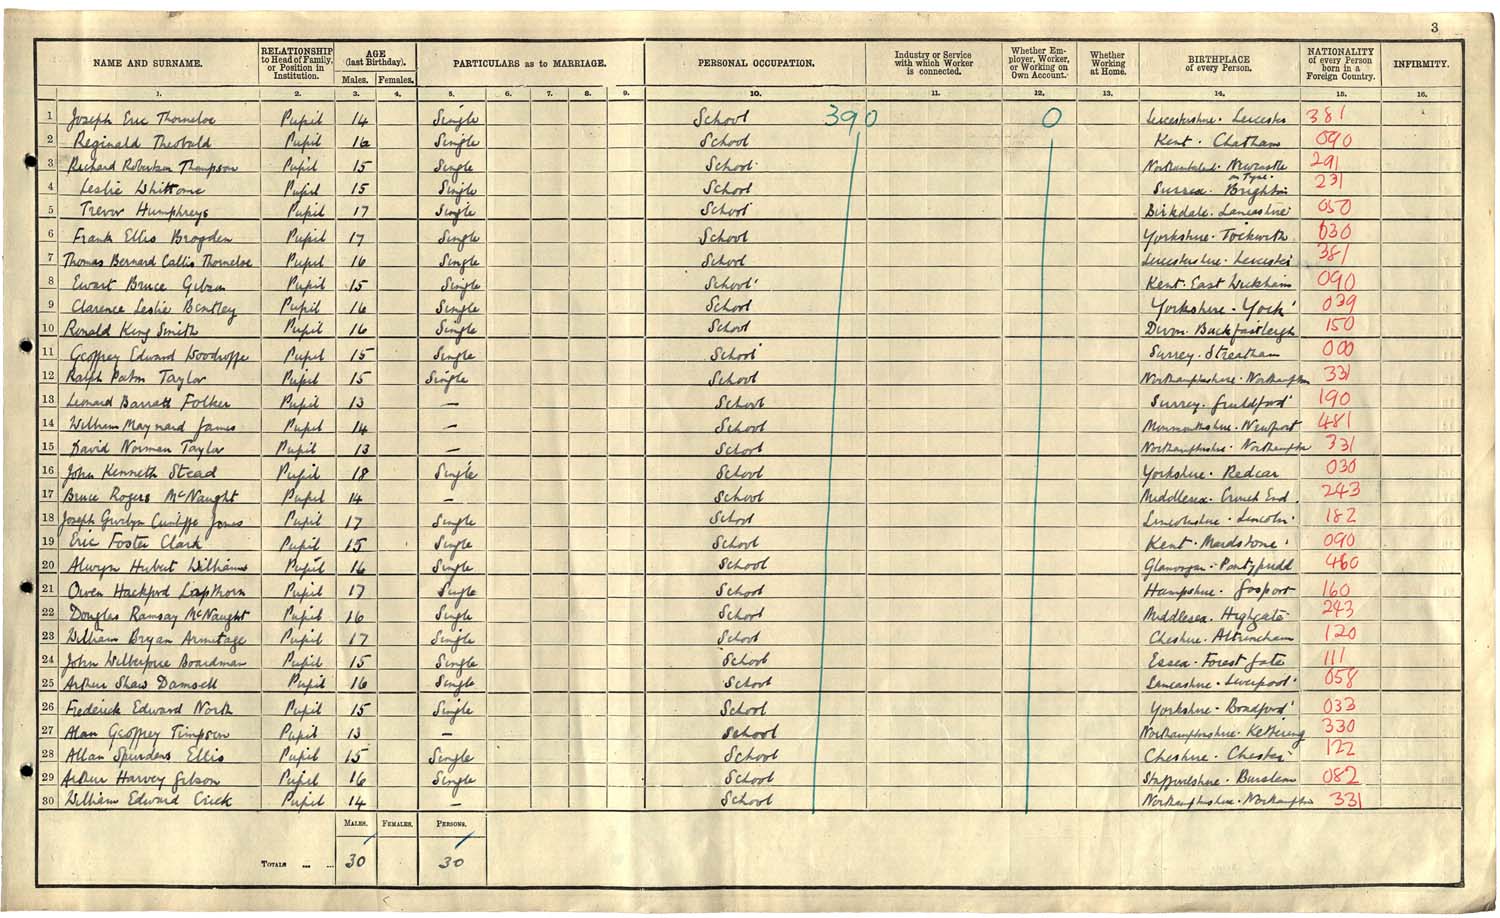 3
NAME AND SURNAME. RELATIONSHIP to Head of Family, or Position in Institution. AGE (last Birthday). Males. Females. PARTICULARS as to MARRIAGE. PERSONAL OCCUPATION. Industry or Service with which Worker is connected. Whether Employer, Worker, or Working on Own Account. Whether Working at Home. BIRTHPLACE of every Person. NATIONALITY of every Person born in a Foreign Country. INFIRMITY.
1. 2. 3. 4. 5. 6. 7. 8. 9. 10. 11. 12. 13. 14. 15. 16.
1 Joseph Eric Thorneloe Pupil 14 Single School 390 0 Leicestershire. Leicester 381
2 Reginald Theobald Pupil 16 Single School Kent. Chatham 090
3 Richard Robertson Thompson Pupil 15 Single School Northumberland. Newcastle on Tyne. 291
4 Leslie Whittome Pupil 15 Single School Sussex. Brighton 231
5 Trevor Humphreys Pupil 17 Single School Birkdale. Lancashire 050
6 Frank Ellis Brogden Pupil 17 Single School Yorkshire. Tockwith 030
7 Thomas Bernard Callis Thorneloe Pupil 16 Single School Leicestershire. Leicester 381
8 Ewart Bruce Gibson Pupil 15 Single School Kent. East Wickham 090
9 Clarence Leslie Bentley Pupil 16 Single School Yorkshire. York 039
10 Ronald King Smith Pupil 16 Single School Devon. Buckfastleigh 150
11 Geoffrey Edward Woodroffe Pupil 15 Single School Surrey. Streatham 000
12 Ralph Palm Taylor Pupil 15 Single School Northamptonshire. Northampton 331
13 Leonard Barratt Folker Pupil 13 — School Surrey. Guildford 190
14 William Maynard James Pupil 14 — School Monmouthshire. Newport 481
15 David Norman Taylor Pupil 13 — School Northamptonshire. Northampton 331
16 John Kenneth Stead Pupil 18 Single School Yorkshire. Redcar 030
17 Bruce Rogers McNaught Pupil 14 — School Middlesex. Crouch End. 243
18 Joseph Gwilym Cunliffe Jones Pupil 17 Single School Lincolnshire. Lincoln 182
19 Eric Foster Clark Pupil 15 Single School Kent. Maidstone 090
20 Alwyn Hubert Williams Pupil 16 Single School Glamorgan. Pontypridd 460
21 Owen Hackford Lapthorn Pupil 17 Single School Hampshire. Gosport 160
22 Douglas Ramsay McNaught Pupil 16 Single School Middlesex. Highgate 243
23 William Bryan Armitage Pupil 17 Single School Cheshire. Altrincham 120
24 John Wilberforce Boardman Pupil 15 Single School Essex. Forest Gate 111
25 Arthur Shaw Damsell Pupil 16 Single School Lancashire. Liverpool 058
26 Frederick Edward North Pupil 15 Single School Yorkshire. Bradford 033
27 Alan Geoffrey Timpson Pupil 13 — School Northamptonshire. Kettering 330
28 Allan Spurdens Ellis Pupil 15 Single School Cheshire. Chester 122
29 Arthur Harvey Gibson Pupil 16 Single School Staffordshire. Burslem 082
30 William Edward Crick Pupil 14 — School Northamptonshire. Northampton 331
MALES. FEMALES. PERSONS.
TOTALS ... ... 30 30